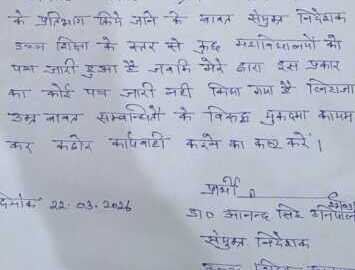 के प्रतिभाग किये जाने के बावत संयुक्त निदेशक
उच्च शिक्षा के स्तर से कुछ महाविद्यालयों को
पत्र जारी हुआ है जबकि मेरे द्वारा इस प्रकार
का कोई पत्र जारी नहीं किया गया है लिहाजा
उक्त बावत सम्बन्धितों के विरूद्ध मुकदमा कायम
कर कठोर कार्यवाही करने का कष्ट करें।
प्रार्थी
दिनांक 22.03.2026
डा० आनन्द सिंह उनियाल
संयुक्त निदेशक
उच्च शिक्षा